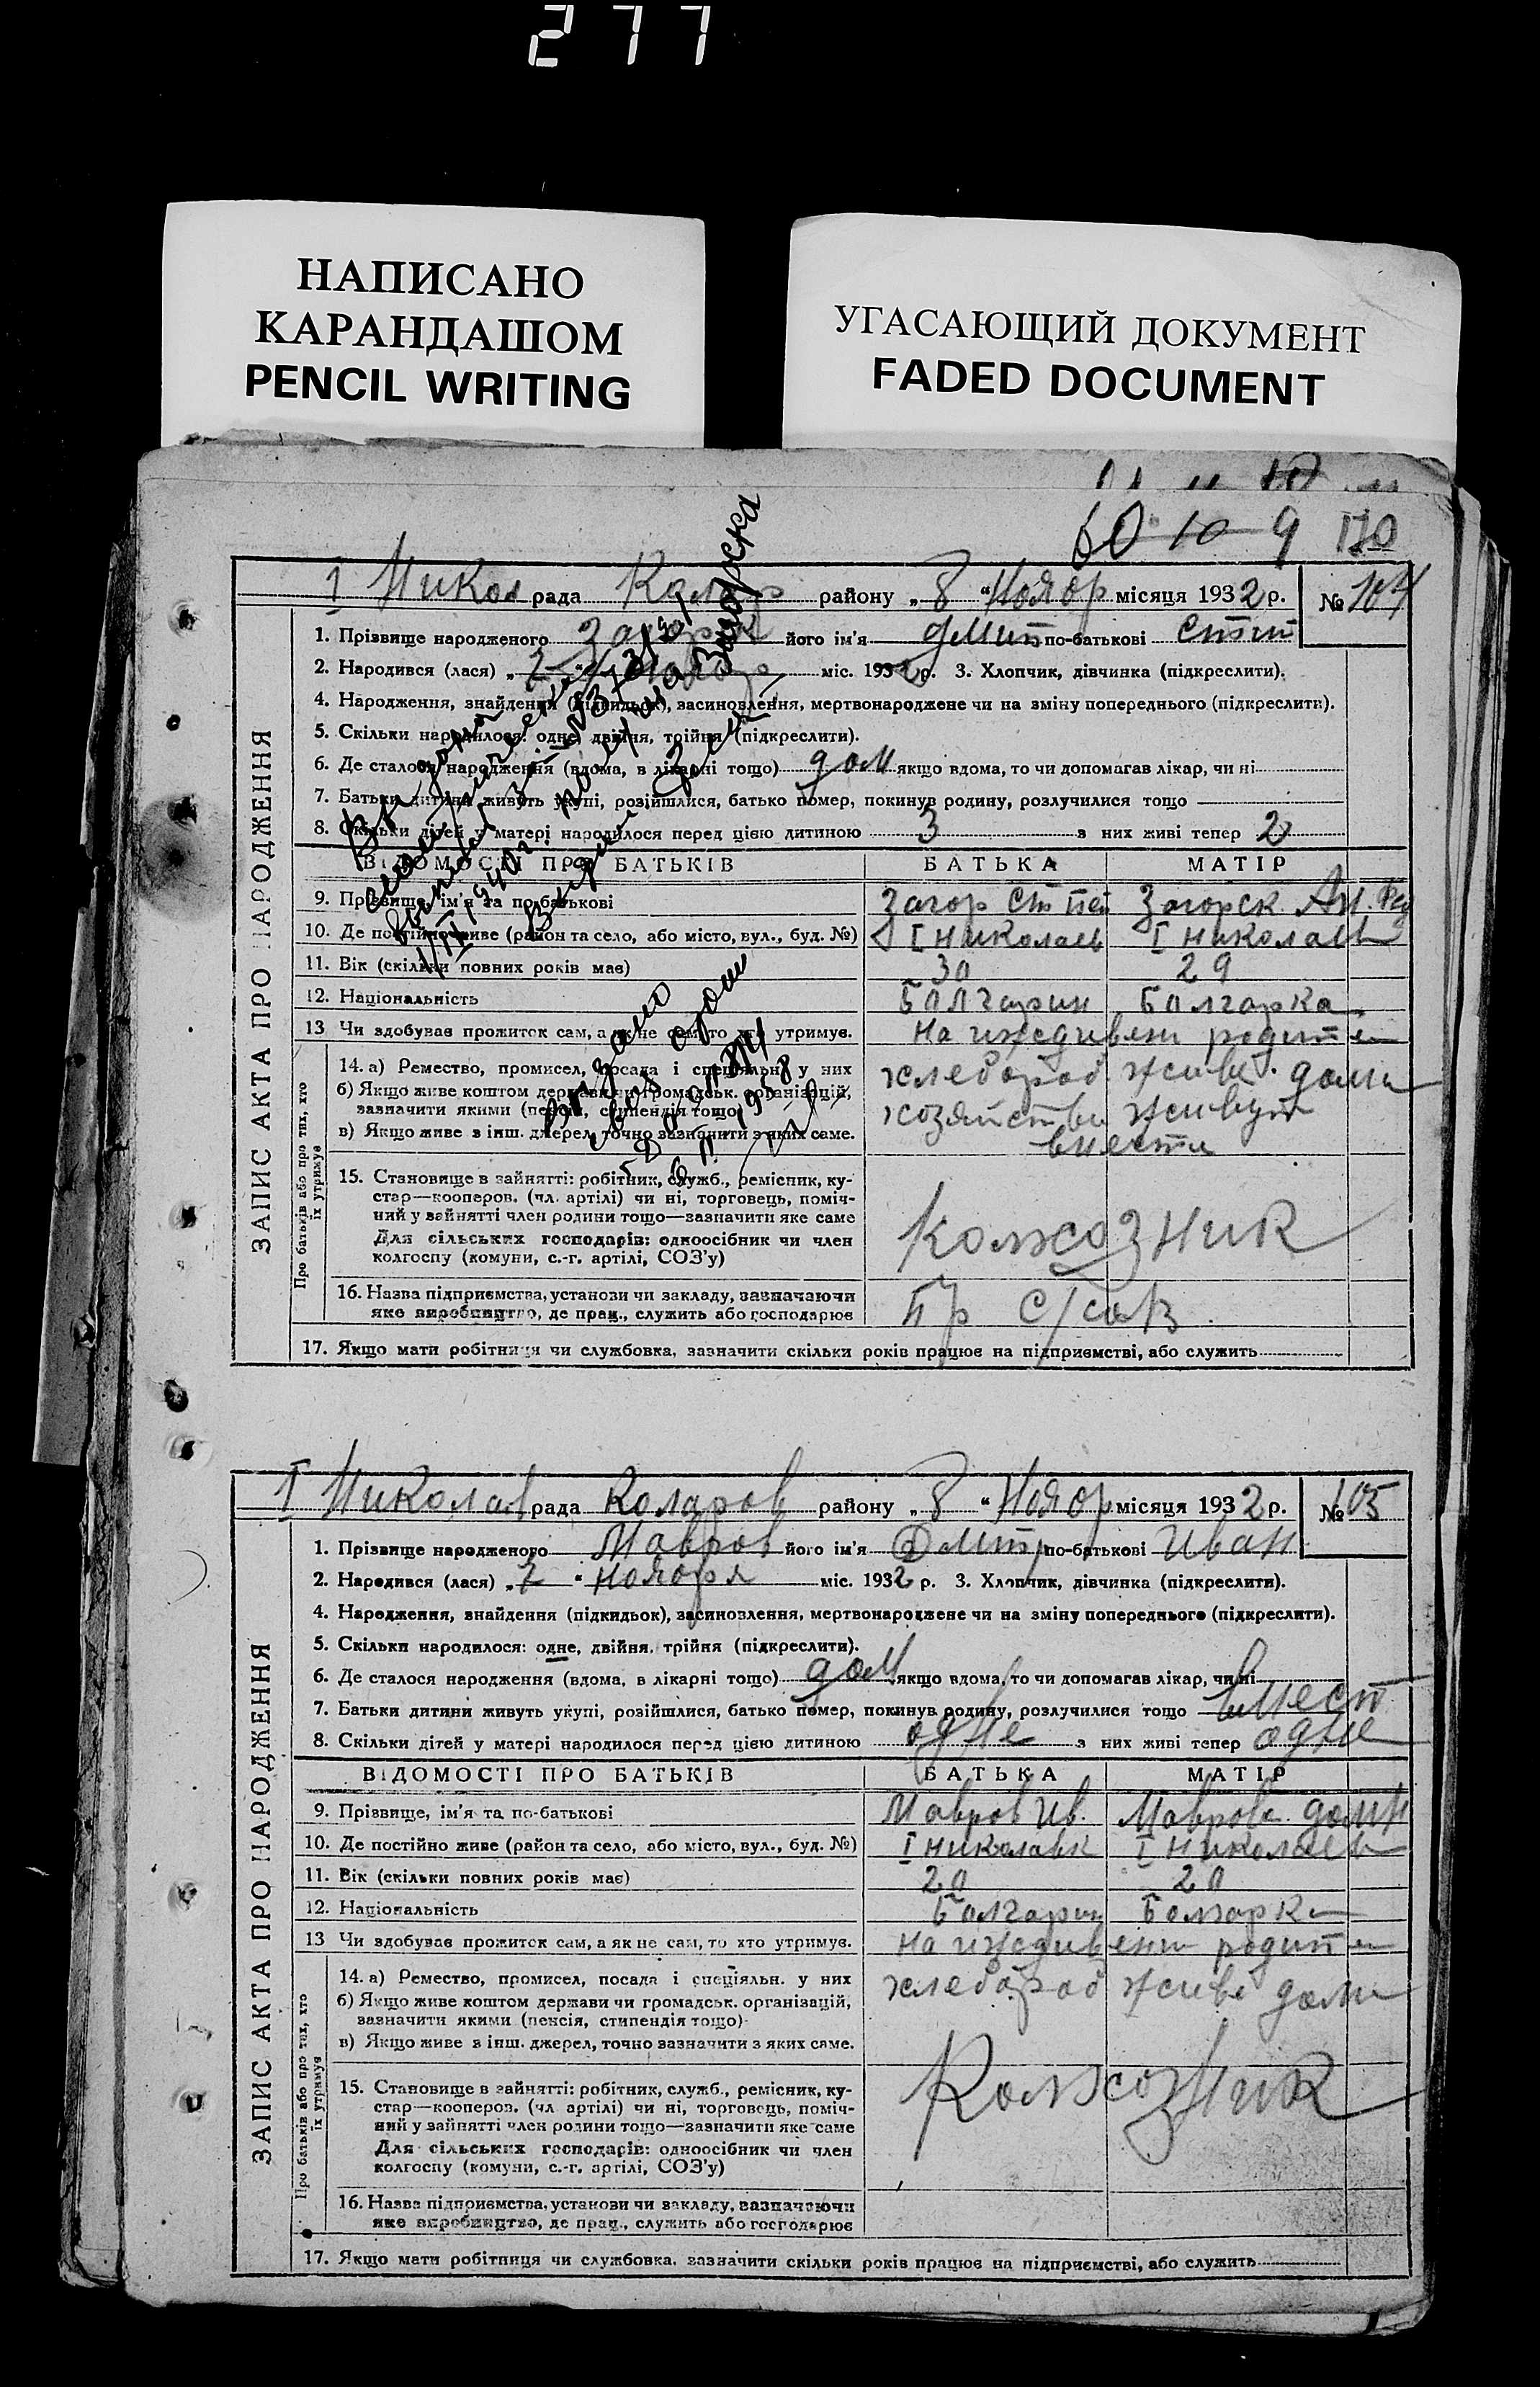 277
НАПИСАНО
КАРАНДАШОМ
PENCIL WRITING
УГАСАЮЩИЙ ДОКУМЕНТ
FADED DOCUMENT
60 10 9 170
I Никол рада района „8 “ Ноябр місяця 1932 р. № 104
ЗАПИС АКТА ПРО НАРОДЖЕННЯ
1. Прізвище народженого Загорск його ім'я Дмит по-батькові Степ
2. Народився (лася) „7 “ міс. 1932 р. 3. Хлопчик, дівчинка (підкреслити).
4. Народження, знайдення (підкидьок), засиновлення, мертвонароджене чи на зміну попереднього (підкреслити).
5. Скільки народилося: одне, двійня, трійня (підкреслити).
6. Де сталося народження (вдома, в лікарні тощо) дом якщо вдома, то чи допомагав лікар, чи ні
7. Батьки дитини живуть укупі, розійшлися, батько помер, покинув родину, розлучилися тощо
8. Скільки дітей у матері народилося перед цією дитиною 3 з них живі тепер 2
ВІДОМОСТІ ПРО БАТЬКІВ БАТЬКА МАТІР
9. Прізвище, ім'я та по-батькові Загор Сте Загорск
10. Де постійно живе (район та село, або місто, вул., буд. №) I Николаев I Николаев
11. Вік (скільки повних років має) 30 29
12. Національність Болгарин Болгарка
13 Чи здобував прожиток сам, а як не сам, то хто утримує. На иждивени родител
Про батьків або про тих, хто їх утримує
14. а) Ремество, промисел, посада і спеціяльн. у них хлебороб живе дома
б) Якщо живе коштом держави чи громадськ. організацій, хозяйстви живут
зазначити якими (пенсія, стипендія тощо) вместе
в) Якщо живе з інш. джерел, точно зазначити з яких саме.
15. Становище в зайнятті: робітник, служб., ремісник, ку-
стар—кооперов. (чл. артілі) чи ні, торговець, поміч-
ний у зайнятті член родини тощо—зазначити яке саме
Для сільських господарів: одноосібник чи член
колгоспу (комуни, с.-г. артілі, СОЗ'у)
Колхозник
16. Назва підприємства, установи чи закладу, зазначаючи
яке виробництво, де прац., служить або господарює
17. Якщо мати робітниця чи службовка, зазначити скільки років працює на підприємстві, або служить
I Николаев рада Коларов району „8 “ Ноябр місяця 1932 р. № 105
ЗАПИС АКТА ПРО НАРОДЖЕННЯ
1. Прізвище народженого Мавров його ім'я Дмитр по-батькові Иван
2. Народився (лася) „7 “ ноября міс. 1932 р. 3. Хлопчик, дівчинка (підкреслити).
4. Народження, знайдення (підкидьок), засиновлення, мертвонароджене чи на зміну попереднього (підкреслити).
5. Скільки народилося: одне, двійня, трійня (підкреслити).
6. Де сталося народження (вдома, в лікарні тощо) дом якщо вдома, то чи допомагав лікар, чи ні
7. Батьки дитини живуть укупі, розійшлися, батько помер, покинув родину, розлучилися тощо вмест
8. Скільки дітей у матері народилося перед цією дитиною одне з них живі тепер одне
ВІДОМОСТІ ПРО БАТЬКІВ БАТЬКА МАТІР
9. Прізвище, ім'я та по-батькові Мавров Ив. Маврова Домн
10. Де постійно живе (район та село, або місто, вул., буд. №) I Николаев I Николаев
11. Вік (скільки повних років має) 20 20
12. Національність Болгарин Болгарка
13 Чи здобував прожиток сам, а як не сам, то хто утримує. на иждивени родител
Про батьків або про тих, хто їх утримує
14. а) Ремество, промисел, посада і спеціяльн. у них хлебороб живе дома
б) Якщо живе коштом держави чи громадськ. організацій,
зазначити якими (пенсія, стипендія тощо)
в) Якщо живе з інш. джерел, точно зазначити з яких саме.
15. Становище в зайнятті: робітник, служб., ремісник, ку-
стар—кооперов. (чл. артілі) чи ні, торговець, поміч-
ний у зайнятті член родини тощо—зазначити яке саме
Для сільських господарів: одноосібник чи член
колгоспу (комуни, с.-г. артілі, СОЗ'у)
Колхозник
16. Назва підприємства, установи чи закладу, зазначаючи
яке виробництво, де прац., служить або господарює
17. Якщо мати робітниця чи службовка, зазначити скільки років працює на підприємстві, або служить